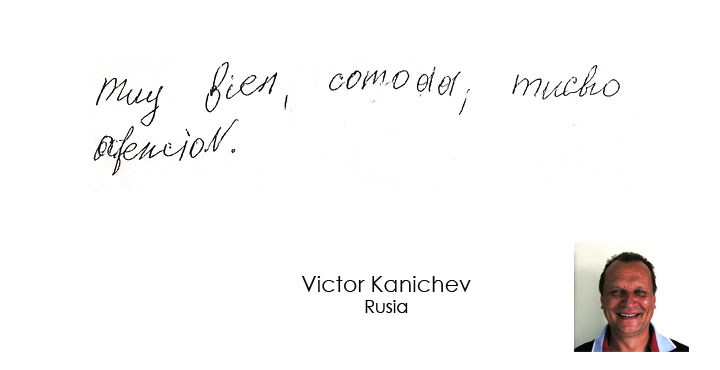 muy bien, comoda, mucho
atencion.
Victor Kanichev
Rusia